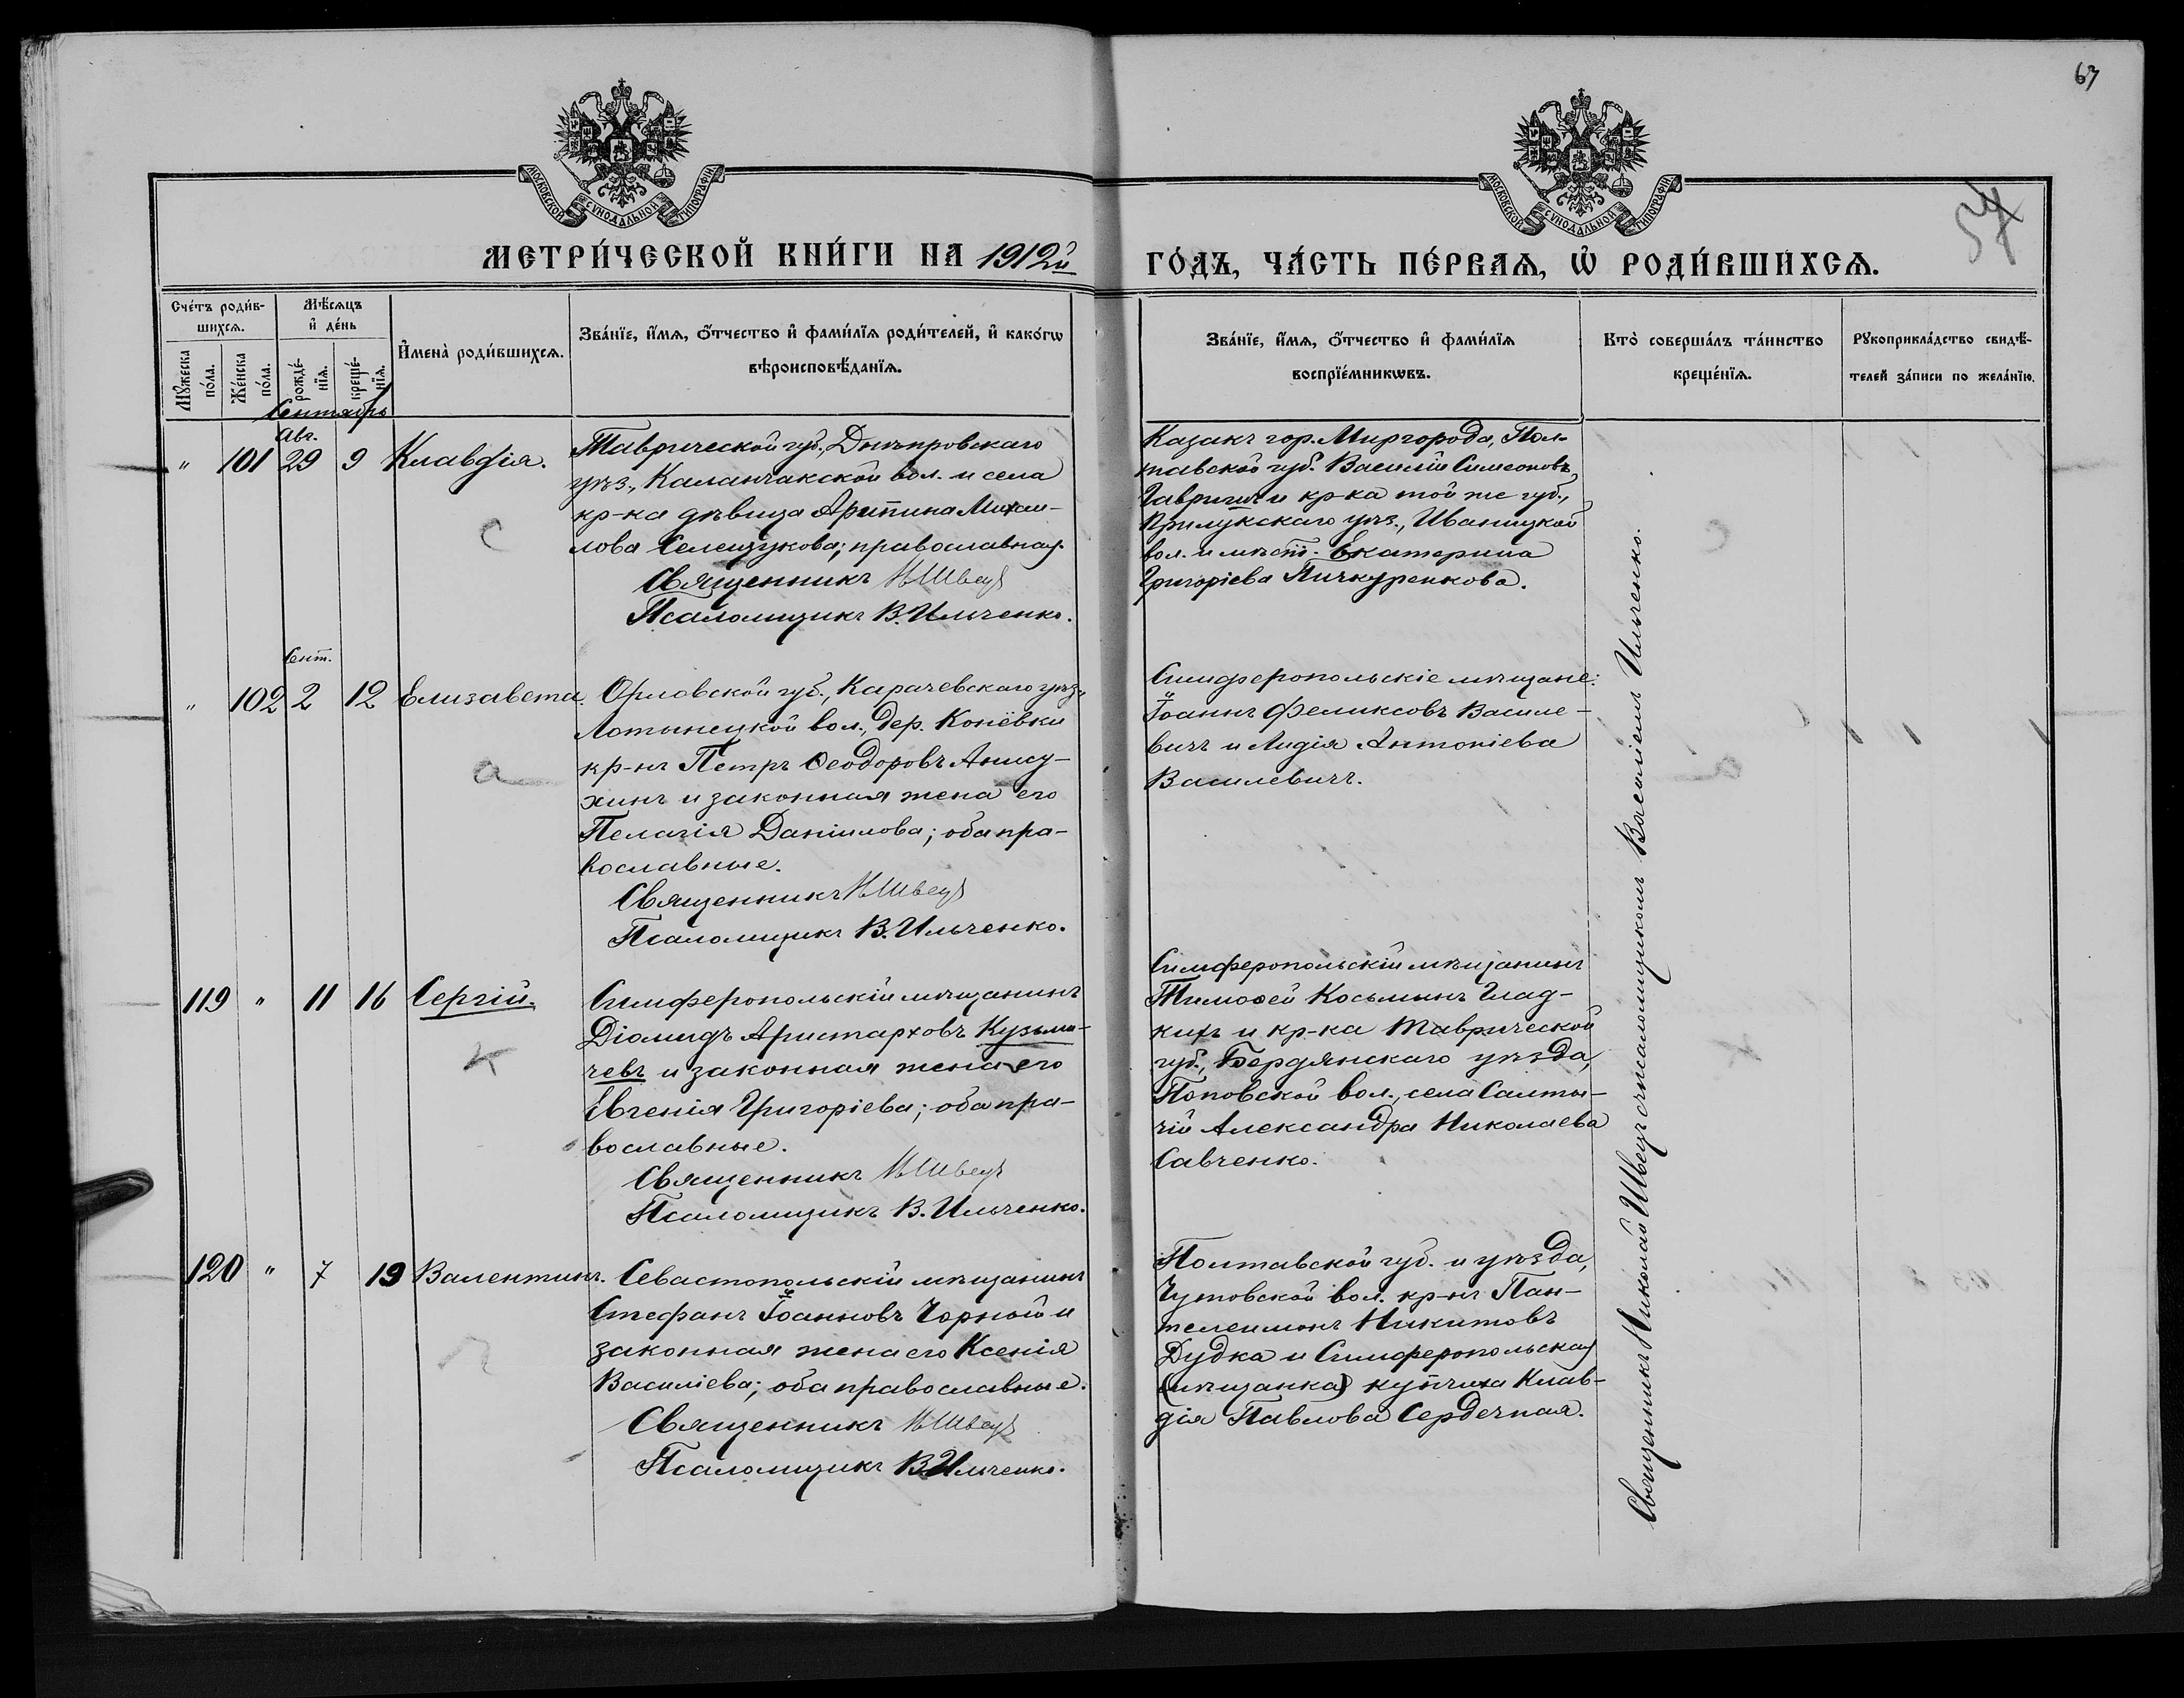 67
57
МОСКОВСКОЙ СѴНОДАЛЬНОЙ ТИПОГРАФІИ
МОСКОВСКОЙ СѴНОДАЛЬНОЙ ТИПОГРАФІИ
МЕТРИ́ЧЕСКОЙ КНИ́ГИ НА 1912й
ГО́ДЪ, ЧА́СТЬ ПЕ́РВАѦ, Ѡ҆ РОДИ́ВШИХСѦ.
Сче́тъ роди́в-
шихсѧ.
Мꙋ́жеска
по́ла.
Же́нска
по́ла.
Мѣ́сѧцъ
и҆ де́нь
рожде́-
нїѧ.
креще́-
нїѧ.
И҆мена̀ роди́вшихсѧ.
Зва́нїе, и҆́мѧ, ѻ҆́тчество и҆ фами́лїѧ роди́телей, и҆ како́гѡ
вѣроисповѣ́данїѧ.
Зва́нїе, и҆́мѧ, ѻ҆́тчество и҆ фами́лїѧ
воспрїе́мникѡвъ.
Кто̀ соверша́лъ та́инство
креще́нїѧ.
Рꙋкоприкла́дство свидѣ́-
телей за́писи по жела́нїю.
Сентябрь
Авг.
" 101 29 9 Клавдія.
Таврической губ., Днѣпровскаго
уѣз., Каланчакской вол. и села
кр-ка дѣвица Агрипина Михаи-
лова Селещукова; православная.
Священникъ Н Швецъ
Псаломщикъ В. Ильченко.
Казакъ гор. Миргорода, Пол-
тавской губ. Василій Симеоновъ
Гавришъ и кр-ка той же губ.,
Прилукскаго уѣз., Иваницкой
вол. и мѣст. Екатерина
Григоріева Пичкуренкова.
С
С
Сент.
" 102 2 12 Елизавета.
Орловской губ., Карачевскаго уѣз.,
Лотынецкой вол., дер. Конёвки
кр-нъ Петръ Ѳеодоровъ Анису-
хинъ и законная жена его
Пелагія Даніилова; оба пра-
вославные.
Священникъ Н Швецъ
Псаломщикъ В. Ильченко.
Симферопольскіе мѣщане:
Іоаннъ Феликсовъ Василе-
вичъ и Лидія Антоніева
Василевичъ.
а
а
119 " 11 16 Сергій.
Симферопольскій мѣщанинъ
Діомидъ Аристарховъ Кузьми-
чевъ и законная жена его
Евгенія Григоріева; оба пра-
вославные.
Священникъ Н Швецъ
Псаломщикъ В. Ильченко.
Симферопольскій мѣщанинъ
Тимоѳей Косьминъ Глад-
кихъ и кр-ка Таврической
губ., Бердянскаго уѣзда,
Поповской вол., села Салты-
чіи Александра Николаева
Савченко.
к
к
120 " 7 19 Валентинъ.
Севастопольскій мѣщанинъ
Стефанъ Іоанновъ Чорный и
законная жена его Ксенія
Василіева; оба православные.
Священникъ Н Швецъ
Псаломщикъ В. Ильченко.
Полтавской губ. и уѣзда,
Чутовской вол. кр-нъ Пан-
телеимонъ Никитовъ
Дудка и Симферопольская
(мѣщанка) купчиха Клав-
дія Павлова Сердечная.
Священникъ Николай Швецъ съ псаломщикомъ Василіемъ Ильченко.